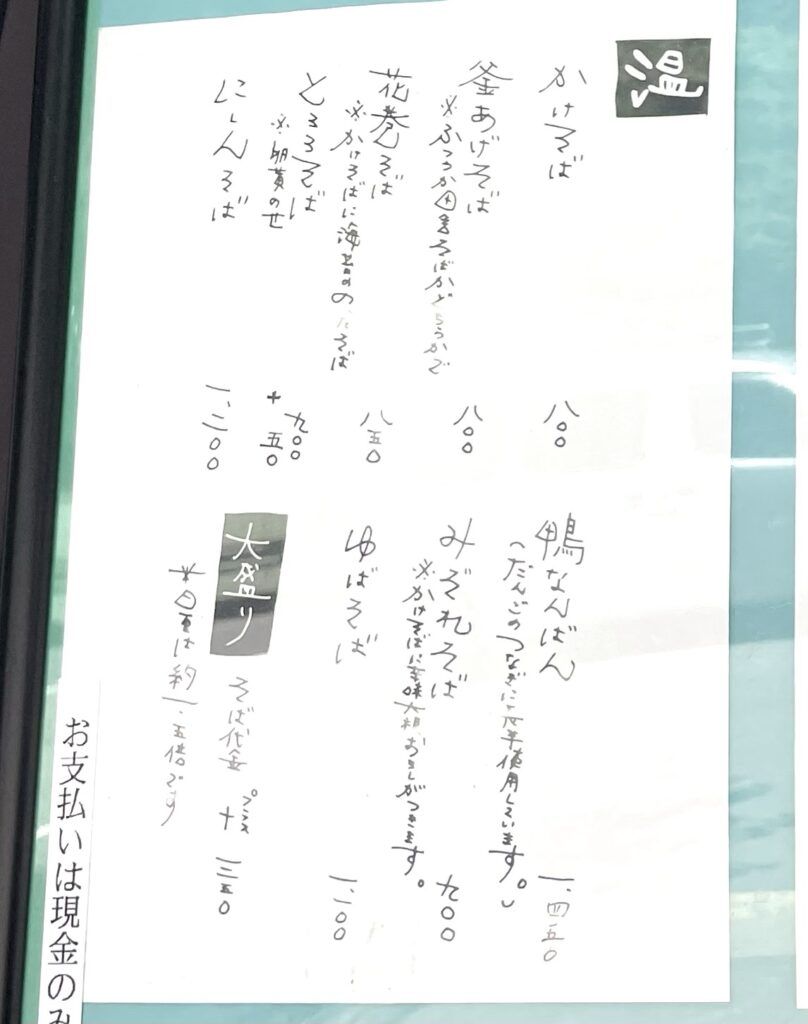 温
かけそば 八〇〇
釜あげそば 八〇〇
※ふつうか田舎そばかどちらかで
花巻そば 八五〇
※かけそばに海苔ののったそば
とろろそば 九〇〇
※卵黄のせ +五〇
にしんそば 一、二〇〇
鴨なんばん 一、四五〇
(だんごのつなぎに 使用しています。)
みぞれそば 九〇〇
※かけそばに辛味大根おろしがつきます。
ゆばそば 一、一〇〇
大盛り そば代金 プラス 十 三五〇
※量は約一・五倍です
お支払いは現金のみ